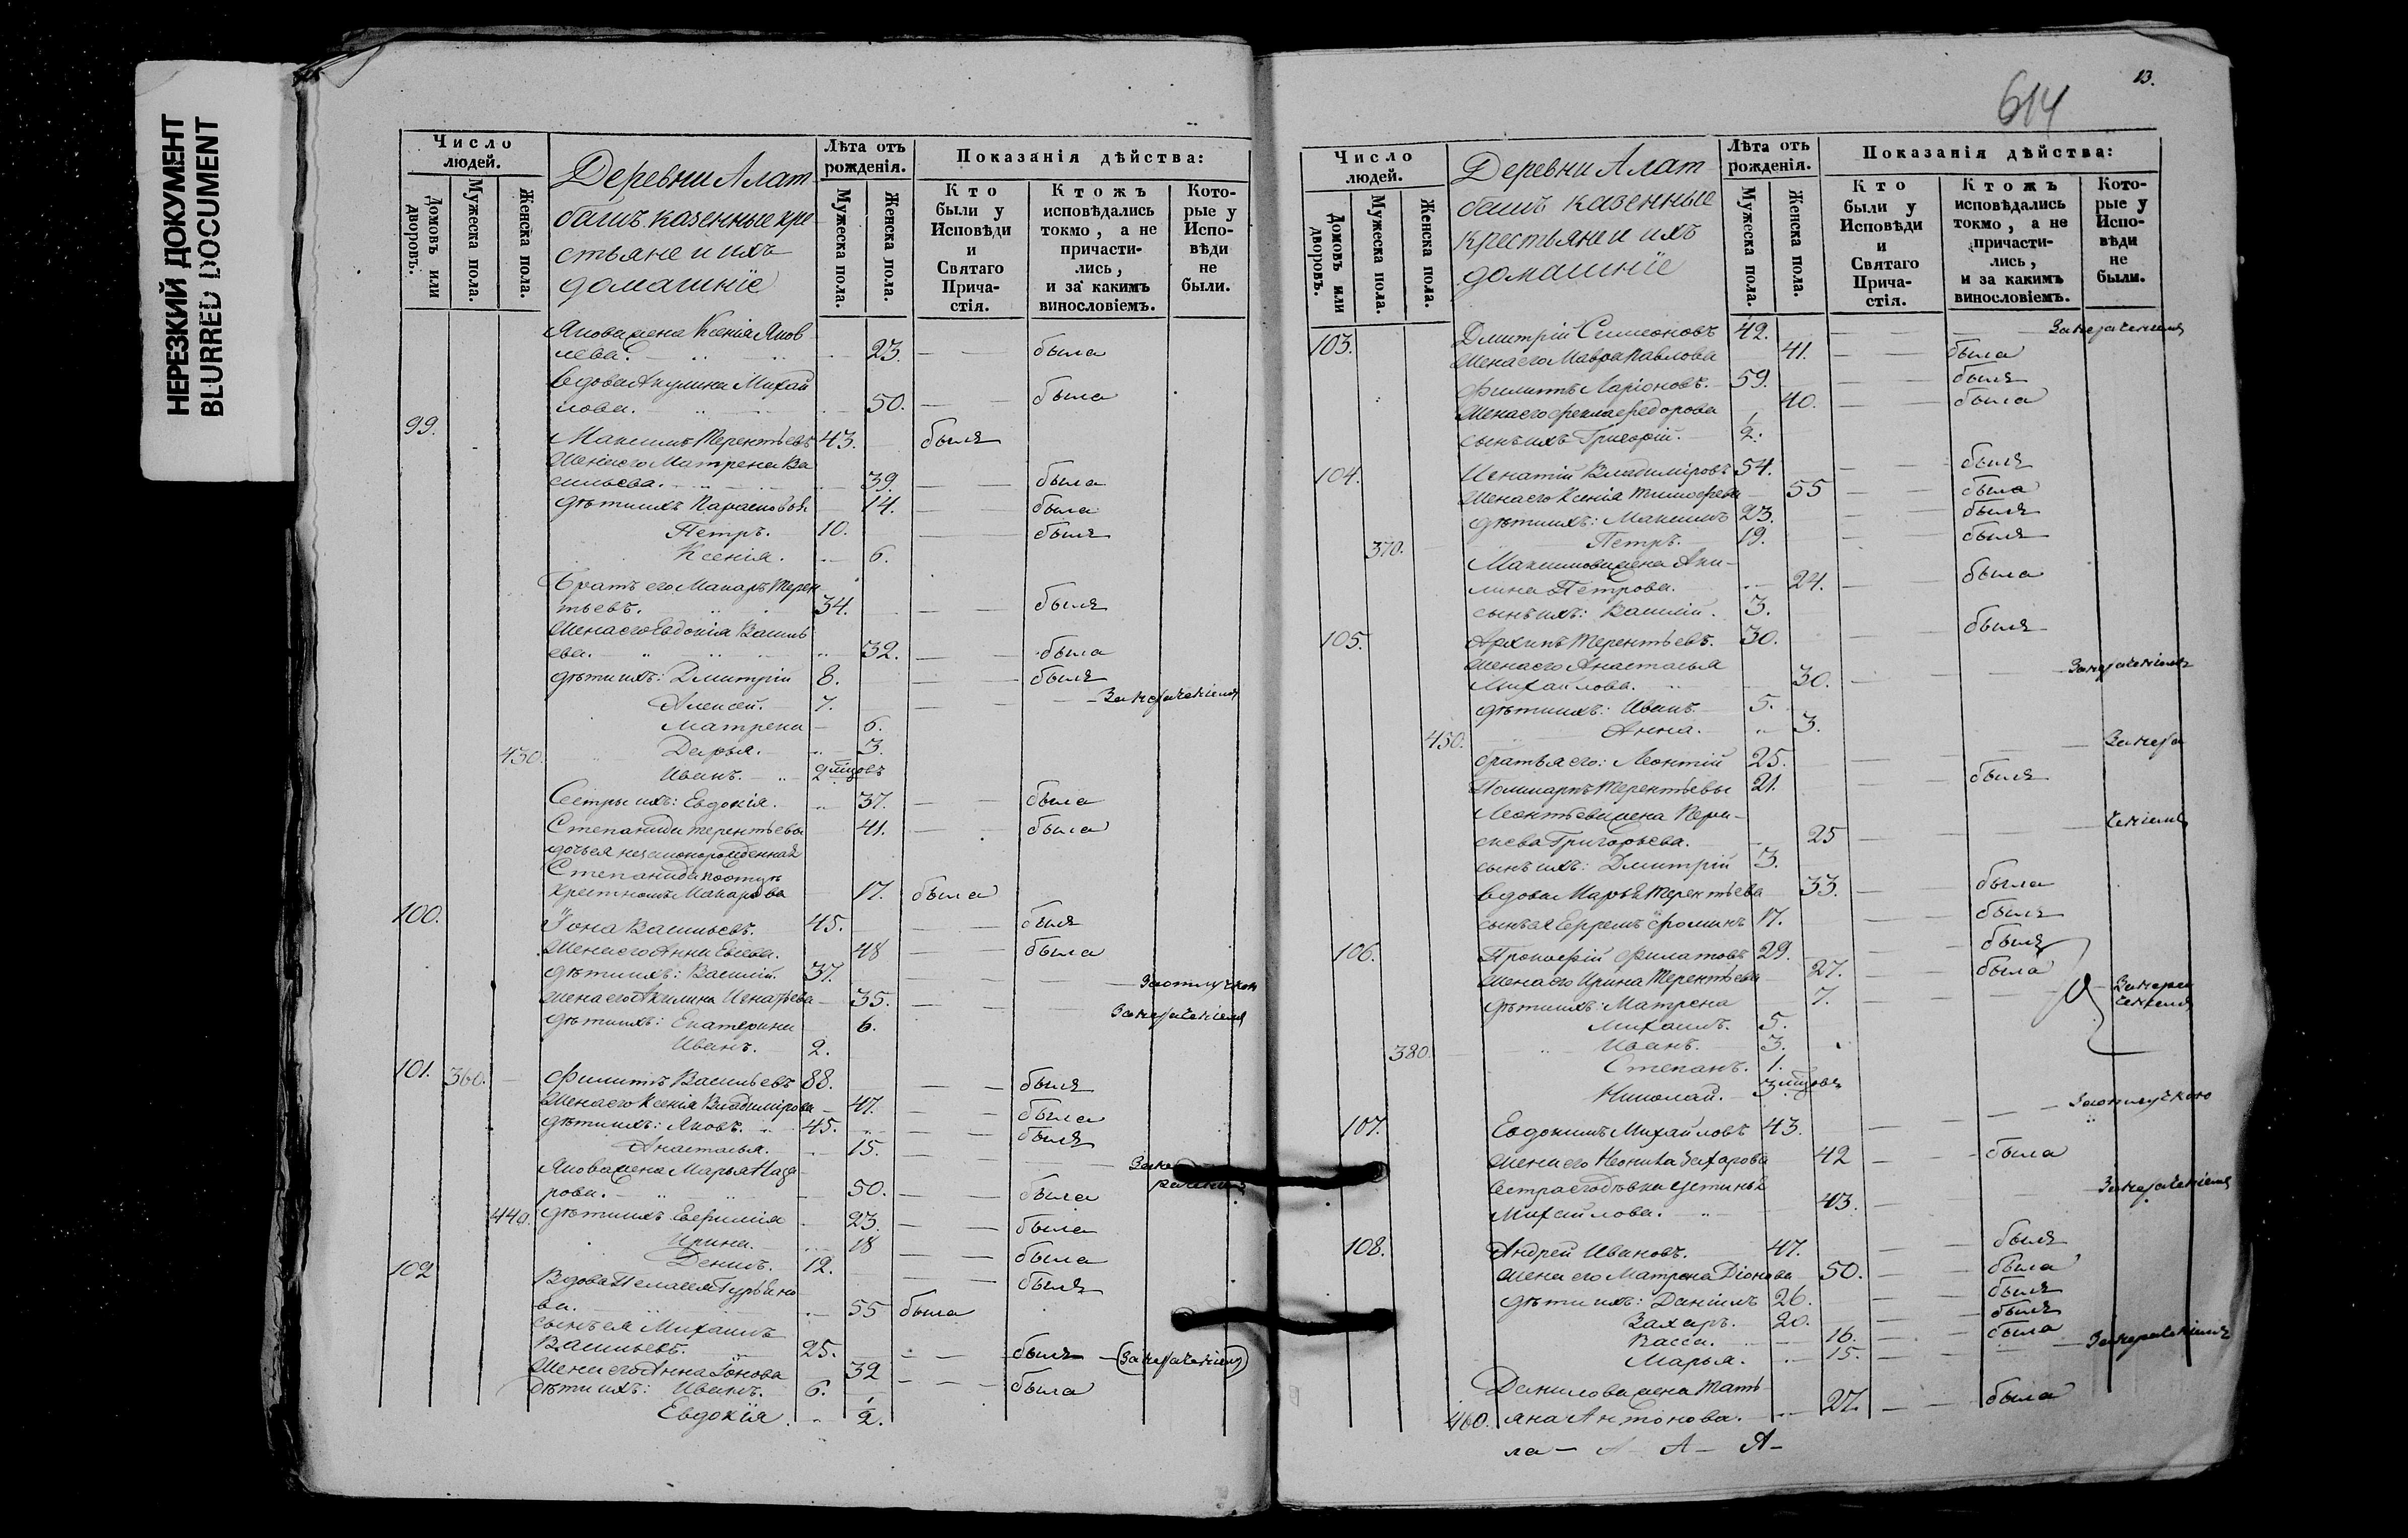 НЕРЕЗКИЙ ДОКУМЕНТ
BLURRED DOCUMENT
Число людей.
Домовъ или дворовъ.
Мужеска пола.
Женска пола.
Деревни Алат
башъ казенные кре
стьяне и ихъ
домашніе
Лѣта отъ рожденія.
Мужеска пола.
Женска пола.
Показанія дѣйства:
Кто были у Исповѣди и Святаго Прича-стія.
Ктожъ исповѣдались токмо, а не причасти-лись, и за какимъ винословіемъ.
Кото-рые у Испо-вѣди не были.
Якова жена Ксенія Яков
лева. 23. была
Вдова Акулина Михай
лова. 50. была
99. Максимъ Терентьевъ 43. былъ
Жена его Матрена Ва
сильева. 39. была
дѣти ихъ Парасковья 14. была
Петръ. 10. былъ
Ксенія. 6.
Братъ его Макаръ Терен
тьевъ. 34. былъ
Жена его Евдокія Василь
ева. 32. была
дѣти ихъ: Дмитрій 8. былъ
Алексей. 7. За нераченіемъ
Матрена 6.
430. Дарья. 3.
Иванъ. 2 мѣсцовъ
Сестры ихъ: Евдокія. 37. была
Степанида Терентьевы 41. была
дочь ея незаконорожденная
Степанида по отцѣ
крестномъ Макарова 17. была
100. Іона Васильевъ. 45. былъ
Жена его Анна Евсева. 48 была
дѣти ихъ: Василій. 37. За отлучкою
Жена его Акилина Игнатьева 35. За нераченіемъ
дѣти ихъ: Екатерина 6.
Иванъ. 2.
101. 360. Филиппъ Васильевъ 88. былъ
Жена его Ксенія Владимірова 47. была
дѣти ихъ: Яковъ. 45. былъ
Анастасья. 15. За не
раченіемъ
Якова жена Марья Наза
рова. 50. была
440. дѣти ихъ Евфимія 23. была
Ирина. 18 была
Денисъ. 12. былъ
102 Вдова Пелагея Гурьяно
ва. 55 была
сынъ ея Михаилъ
Васильевъ. 25. былъ (За нераченіемъ)
Жена его Анна Іонова 32 была
дѣти ихъ: Иванъ. 6.
Евдокія. 1/2.
13.
614
Число людей.
Домовъ или дворовъ.
Мужеска пола.
Женска пола.
Деревни Алат
башъ казенные
крестьяне и ихъ
домашніе
Лѣта отъ рожденія.
Мужеска пола.
Женска пола.
Показанія дѣйства:
Кто были у Исповѣди и Святаго Прича-стія.
Ктожъ исповѣдались токмо, а не причасти-лись, и за какимъ винословіемъ.
Кото-рые у Испо-вѣди не были.
103. Дмитрій Симеоновъ 42. За нераченіемъ
Жена его Мавра Павлова 41. была
Филиппъ Ларіоновъ. 59. былъ
Жена его Фекла Федорова 40. была
сынъ ихъ Григорій. 1/2.
104. Игнатій Владиміровъ 54. былъ
Жена его Ксенія Тимофева 55 была
дѣти ихъ: Максимъ 23. былъ
370. Петръ. 19. былъ
Максимова жена Аки-
лина Петрова. 24. была
сынъ ихъ: Василій. 3.
105. Архипъ Терентьевъ. 30. былъ
Жена его Анастасья
Михайлова. 30. За нераченіемъ
дѣти ихъ: Иванъ. 5.
450. Анна. 3.
братья его: Леонтій 25. За нера
Поликарпъ Терентьевы 21. былъ
Леонтьева жена
Григорьева. 25 ченіемъ
сынъ ихъ: Дмитрій 3.
Вдова Марья Терентьева 33. была
сынъ ея Ефремъ Фоминъ 17. былъ
106. Прокофій Филатовъ 29. былъ
Жена его Ирина Терентьева 27. была
дѣти ихъ: Матрена 7. За нера
ченіемъ
Михаилъ. 5.
380. Иванъ. 3.
Степанъ. 1.
Николай. 3 мѣсцовъ
107. Евдокимъ Михайловъ 43. За отлучкою
Жена его Неонила Захарова 42 была
Сестра его дѣвка Устинья
Михайлова. 43. За нераченіемъ
108. Андрей Ивановъ. 47. былъ
Жена его Матрена Діонова 50. была
дѣти ихъ: Даніилъ 26. былъ
Захаръ. 20. былъ
Васса. 16. была
Марья. 15. За нераченіемъ
Данилова жена Тать
460. яна Антонова. 27. была
ла — А — А — А —